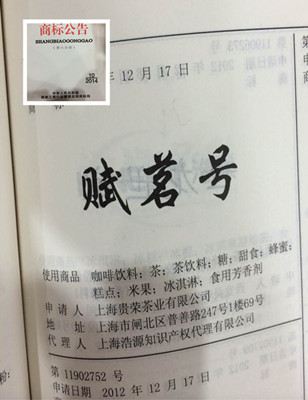 商标公告
SHANGBIAOGONGGAO
2014
第 11906273 号
申请日期 2012 年
年 12 月 17 日
商 标
赋茗号
使用商品 咖啡饮料；茶；茶饮料；糖；甜食；蜂蜜；
糕点；米果；冰淇淋；食用芳香剂
申 请 人 上海贵荣茶业有限公司
地 址 上海市闸北区普善路247号1楼69号
代 理 人 上海浩源知识产权代理有限公司
第 11902752 号
申请日期 2012 年 12 月 17 日